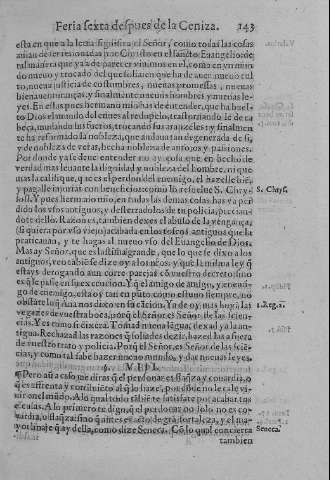 Feria sexta despues de la Ceniza. 143
esta en que a la letra significa el Señor, como todas las cosas
auian de ser renouadas por Christo en el sancto Euangelio de
tal manera que ya de parecer vinimos en el, como en vn mun
do nueuo y trocado del que solian que ha de auer nueuo cul
to, nueua justicia de costumbres, nueuas promessas, nueuas
bienauenturanças, y finalmente nueuos hombres, y nueuas le
yes. En estas pues hermanos mios has de entender, que ha buel
to Dios el mundo del enues al redopelo, trastornando le de ca
beça, mudando los fueros, trocando sus aranzeles y finalmen
te ha reformado la nobleza, que andaua tan degenerada de si,
y de nobleza de vetas, hecha nobleza de antojos, y passiones.
Por donde ya se deue entender no ay cosa que en hecho de
verdad mas leuante la dignidad y nobleza del hombre, ni que
mas la califique, que es el perdon del enemigo, el hazelle bie,
y pagalle injurias con beneficios: como lo resuelue S. Chry- S. Chrys.
sost. Y pues hermano mio, en todas las demas cosas has ya per
dido los vsos antiguos, y desterradolos de tu policia, precian
dote dello. Razon es, tambien dexes el abuso de la vengança,
(si quiera por vso viejo) acabada en los toscos antiguos que la
praticauan, y te hagas al nueuo vso del Euangelio de Dios.
Mas ay Señor, que es lastima grande, que lo que se dixo a los
antiguos, veo
estays derogando aun corre parejas cō vuestro decreto: sino
es q̃ le passe en su execucion. Y q̃ el amigo de amigo, y enemi-
go de enemigo, estas oy tan en punto como estuuo siempre, no
obstante lo q̃ Ana nos dixo en su cācion. Ya de oy mas hoy las 1.Reg.2.
vegazes de vuestra boca, porq̃ el Señor es Señor de las scien-
cias. Y es como si dixera. Tomad nueua lēgua, dexad ya la an-
tigua. Rechazad las razones q̃ soliades dezir, hazed las a fuera
de vuestro trato y policia. Porq̃ el Señor, es Señor de las sciē-
cias, y como tal sabe hazer nueuo mundo, y dar nueuas leyes.
§. VIII.
Pero aū a caso me diras q̃ el perdonar es flaq̃za y couardia, o
q̃ es afrenta y
uir en el mūdo. A lo qual todo
cosas. A lo primero te digo, q̃ el perdonar no solo no es co-
uardia, o flaq̃za: sino q̃ antes es acto de grā fortaleza, y el ma-
yor linaje q̃ ay della, como dize Seneca. Cō lo qual concierta Seneca.
tambien